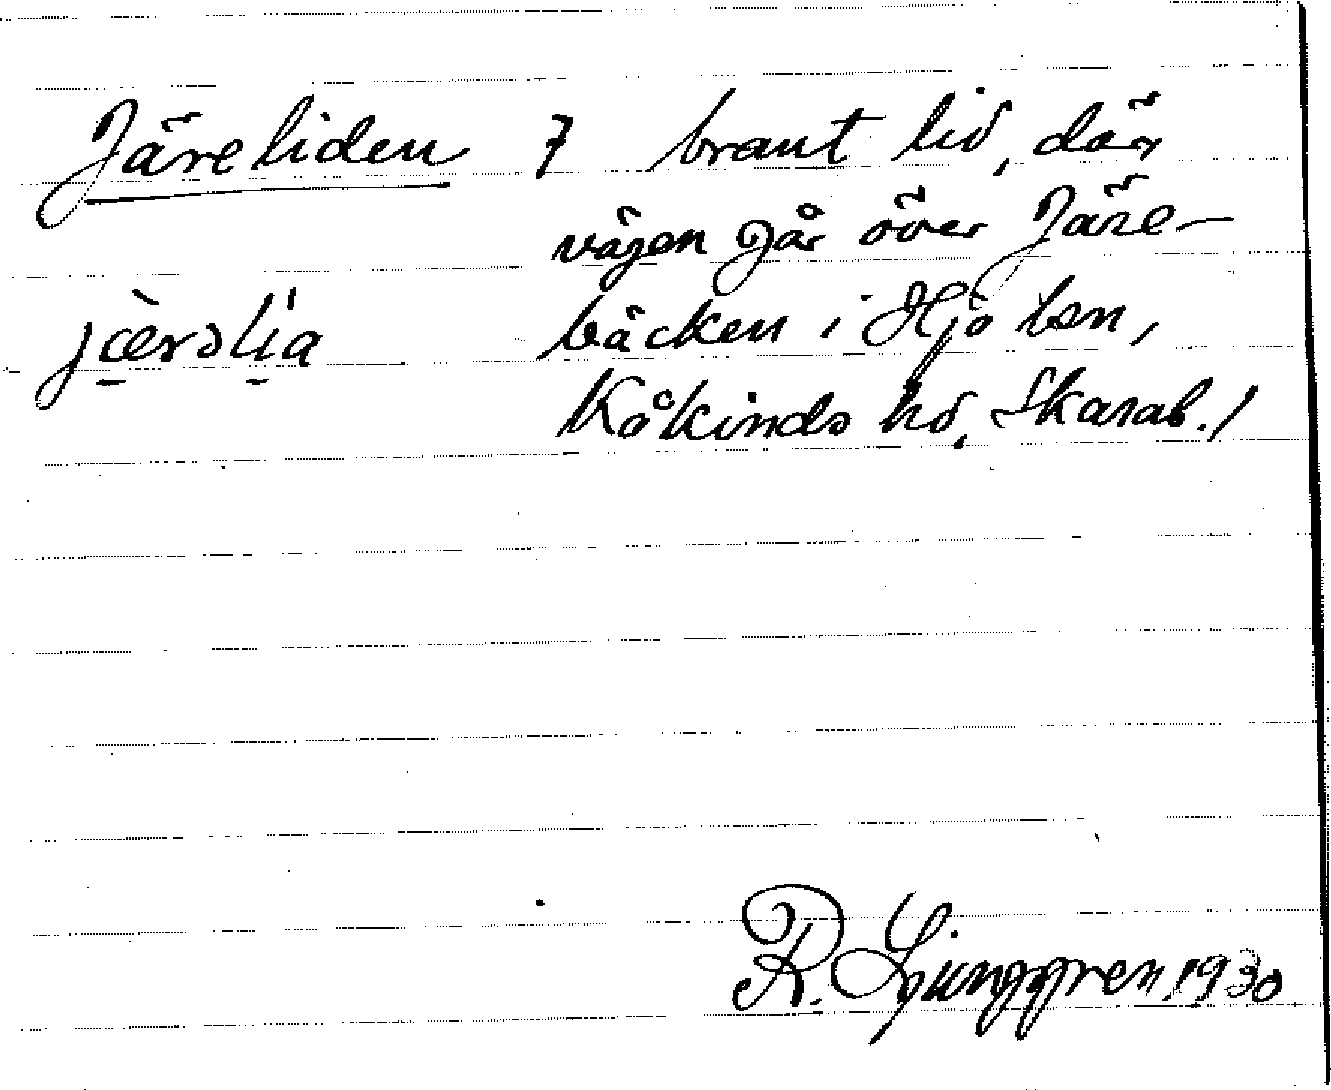 Järeliden 7 brant lid, där
vägen går över Järe-
jæ̀rəlía bäcken i Hjo lsn,
Kåkinds hd, Skarab./
R. Ljunggren 1930